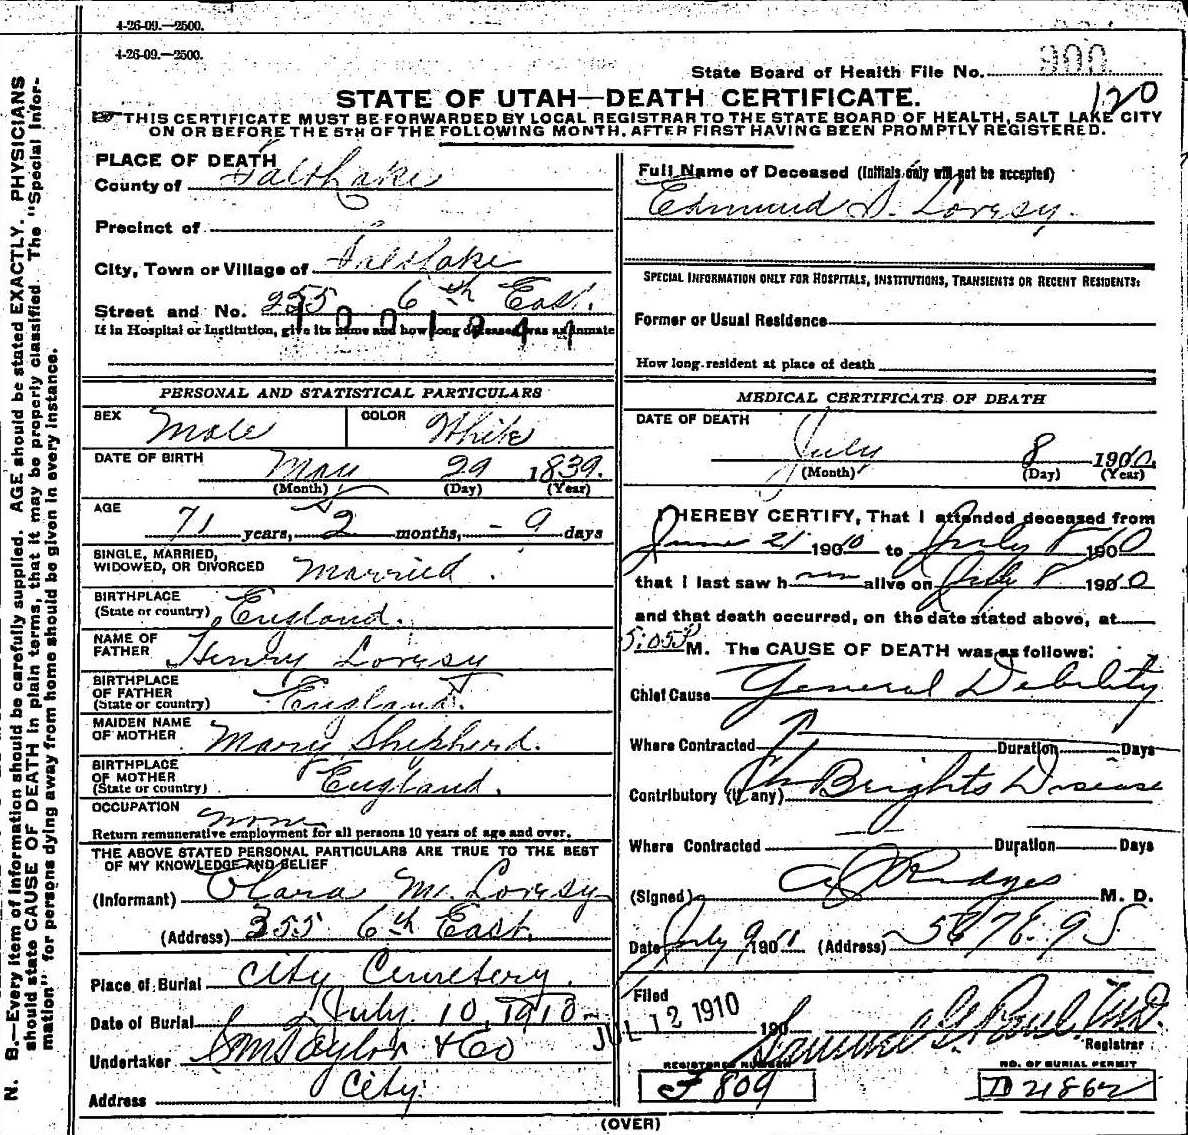 4-26-09.—2500.
4-26-09.—2500.
State Board of Health File No. 900
120
STATE OF UTAH—DEATH CERTIFICATE.
THIS CERTIFICATE MUST BE FORWARDED BY LOCAL REGISTRAR TO THE STATE BOARD OF HEALTH, SALT LAKE CITY
ON OR BEFORE THE 5TH OF THE FOLLOWING MONTH, AFTER FIRST HAVING BEEN PROMPTLY REGISTERED.
N. B.—Every item of information should be carefully supplied. AGE should be stated EXACTLY. PHYSICIANS
should state CAUSE OF DEATH in plain terms, that it may be properly classified. The "Special Infor-
mation" for persons dying away from home should be given in every instance.
PLACE OF DEATH
County of Salt Lake
Precinct of
City, Town or Village of Salt Lake
Street and No. 355 6th East.
If in Hospital or Institution, give its name and how long deceased was an inmate
1001944
PERSONAL AND STATISTICAL PARTICULARS
SEX Male COLOR White
DATE OF BIRTH May 29 1839.
(Month) (Day) (Year)
AGE
71 years, 2 months, - 9 days
SINGLE, MARRIED,
WIDOWED, OR DIVORCED Married.
BIRTHPLACE
(State or country) England.
NAME OF
FATHER Henry Lovesy
BIRTHPLACE
OF FATHER
(State or country) England.
MAIDEN NAME
OF MOTHER Mary Shepherd.
BIRTHPLACE
OF MOTHER
(State or country) England.
OCCUPATION none
Return remunerative employment for all persons 10 years of age and over.
THE ABOVE STATED PERSONAL PARTICULARS ARE TRUE TO THE BEST
OF MY KNOWLEDGE AND BELIEF
(Informant) Clara M. Lovesy
(Address) 355 6th East.
Place of Burial City Cemetery.
Date of Burial July 10, 1910
Undertaker S M Taylor & Co
Address City.
Full Name of Deceased (Initials only will not be accepted)
Edmund S. Lovesy.
SPECIAL INFORMATION ONLY FOR HOSPITALS, INSTITUTIONS, TRANSIENTS OR RECENT RESIDENTS:
Former or Usual Residence
How long resident at place of death
MEDICAL CERTIFICATE OF DEATH
DATE OF DEATH
July 8 1910.
(Month) (Day) (Year)
I HEREBY CERTIFY, That I attended deceased from
June 21 1910 to July 8 1910
that I last saw h im alive on July 8 1910
and that death occurred, on the date stated above, at
5:05 P M. The CAUSE OF DEATH was as follows:
Chief Cause General Debility
Where Contracted Duration Days
Contributory (if any) Ch Brights Disease
Where Contracted Duration Days
(Signed) M. D.
Date July 9 (Address)
Filed JUL 12 1910 190
Samuel G. Paul M.D.
Registrar
REGISTERED NUMBER
F 809
NO. OF BURIAL PERMIT
D 4862
(OVER)